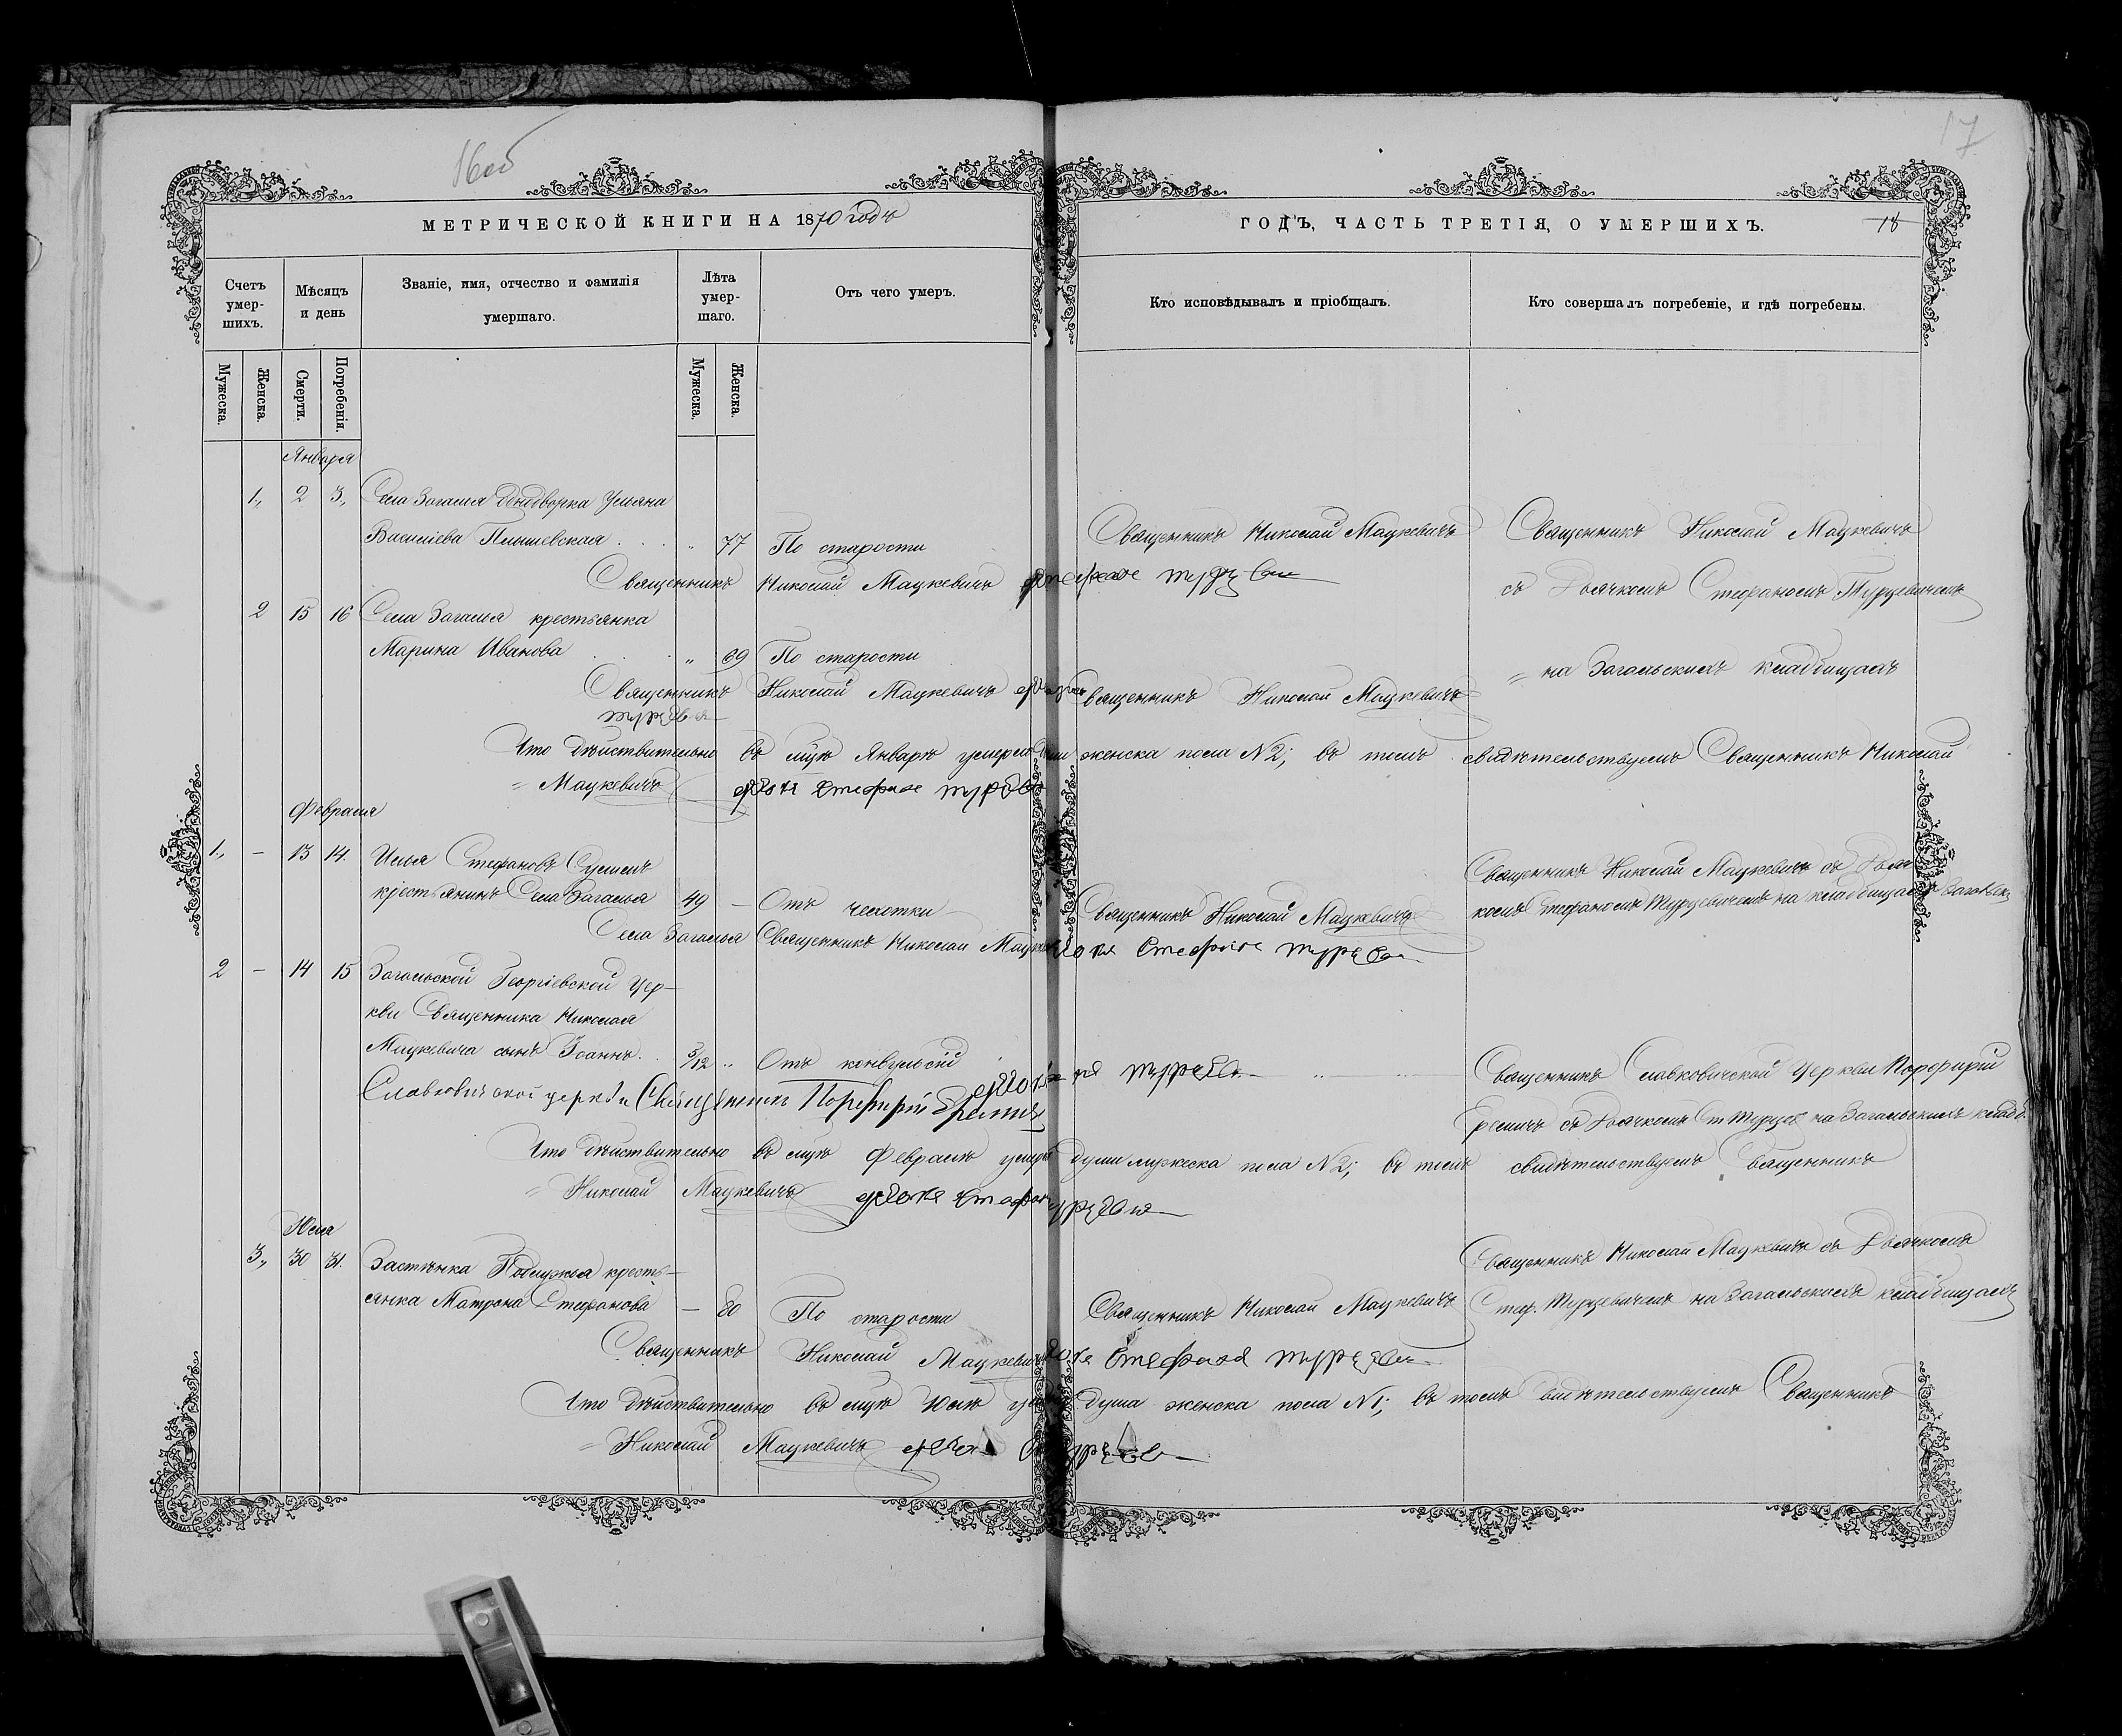 16об
17
МЕТРИЧЕСКОЙ КНИГИ НА 1870 годъ
ГОДЪ, ЧАСТЬ ТРЕТІЯ, О УМЕРШИХЪ.
18
Счетъ умер-
шихъ.
Мѣсяцъ
и день
Званіе, имя, отчество и фамилія
умершаго.
Лѣта
умер-
шаго.
Отъ чего умеръ.
Кто исповѣдывалъ и пріобщалъ.
Кто совершалъ погребеніе, и гдѣ погребены.
Мужеска.
Женска.
Смерти.
Погребенія.
Мужеска.
Женска.
Января
1., 2 3., Села Загалья Однодворка Ульяна
Василіева . . . „ 77 По старости
Священникъ Николай Мацкевичъ
Священникъ Николай Мацкевичъ
съ Дьячкомъ Стефаномъ Турцевичемъ
Священникъ Николай Мацкевичъ
2 15 16 Села Загалья крестьянка
Марина Иванова . . . „ 69 По старости
Священникъ Николай Мацкевичъ
Священникъ Николай Мацкевичъ
на Загальскихъ кладбищахъ
Что дѣйствительно въ мцѣ Январѣ женска пола N 2; въ томъ свидѣтельствуемъ Священникъ Николай
Мацкевичъ
Февраля
1., — 13 14. Илья Стефановъ
крестьянинъ Села Загалья 49 — Отъ чехотки
Священникъ Николай Мацкевичъ
Священникъ Николай Мацкевичъ съ Дьяч
комъ Стефаномъ Турцевичемъ на кладбищахъ
Села Загалья Священникъ Николай
2 — 14 15 Загальской Георгіевской Цер-
кви Священника Николая
Мацкевича сынъ Іоаннъ . . 3/12 „ Отъ конвульсій
Священникъ Славковичской Церкви Порфирій
Еремичъ съ Дьячкомъ Ст Турцев на Загальскихъ кладб
Славковичской церкви Священникъ Порфирій Еремичъ
Что дѣйствительно въ мцѣ Февралѣ души мужеска пола N 2; въ томъ свидѣтельствуемъ Священникъ
Николай Мацкевичъ
Юля
3., 30 31. Застѣнка кресть-
янка Матрона Стефанова — 80 По старости
Священникъ Николай Мацкевичъ
Священникъ Николай Мацкевичъ съ Дьячкомъ
Стеф. Турцевичемъ на Загальскихъ кладбищахъ
Священникъ Николай Мацкевичъ
Что дѣйствительно въ мцѣ Юлѣ душа женска пола N 1; въ томъ свидѣтельствуемъ Священникъ
Николай Мацкевичъ